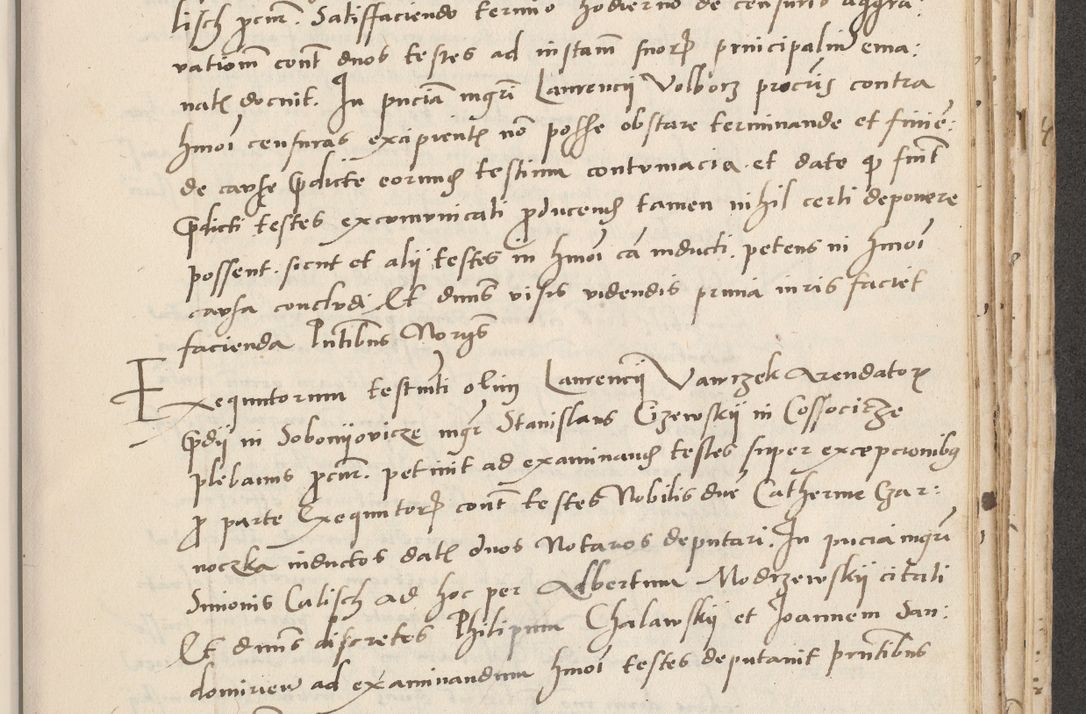 lisch ꝓcur. Satisfaciendo termino hodierno de censuris aggra:
vationum cont duos testes ad instam suorꝫ principaliū ema:
nat docuit. In pn̄cia mgri Laurencij Volborz procuris contra
hmoi censuras excipient non posse obstare terminande et finiē:
de causse pdicte eorund testium contumacia et date ꝙ sint
pdicti testes excomunicati ꝓducend tamen nihil certi deponere
possent. sicut et alij testes in hmoi ca inducti. petens in hmoi
causa concludi Et dnus visis videndis primia iuris faciet
facienda Pntibus Norijs
Exequutorum testinti olim Laurencij Vawrzek Arendatorꝫ
pdij in Sobonijovicze mgr Stanislaus Cizewskij in Cossocitze
plebanus ꝓcur. petiuit ad examinand testes super excepcionibꝫ
ꝓ parte Exequutorꝫ cont testes Nobilis dne Catherine Czar:
noczka inductos dat duos Notarios deputari. In pn̄cia mgri
Simonis Calisch ad hoc per Albertum Modrzewskij citati
Et dnus discretes Philipum Chalawskij et Joannem San:
domirien ad examinandum hmoi testes deputauit pntibus